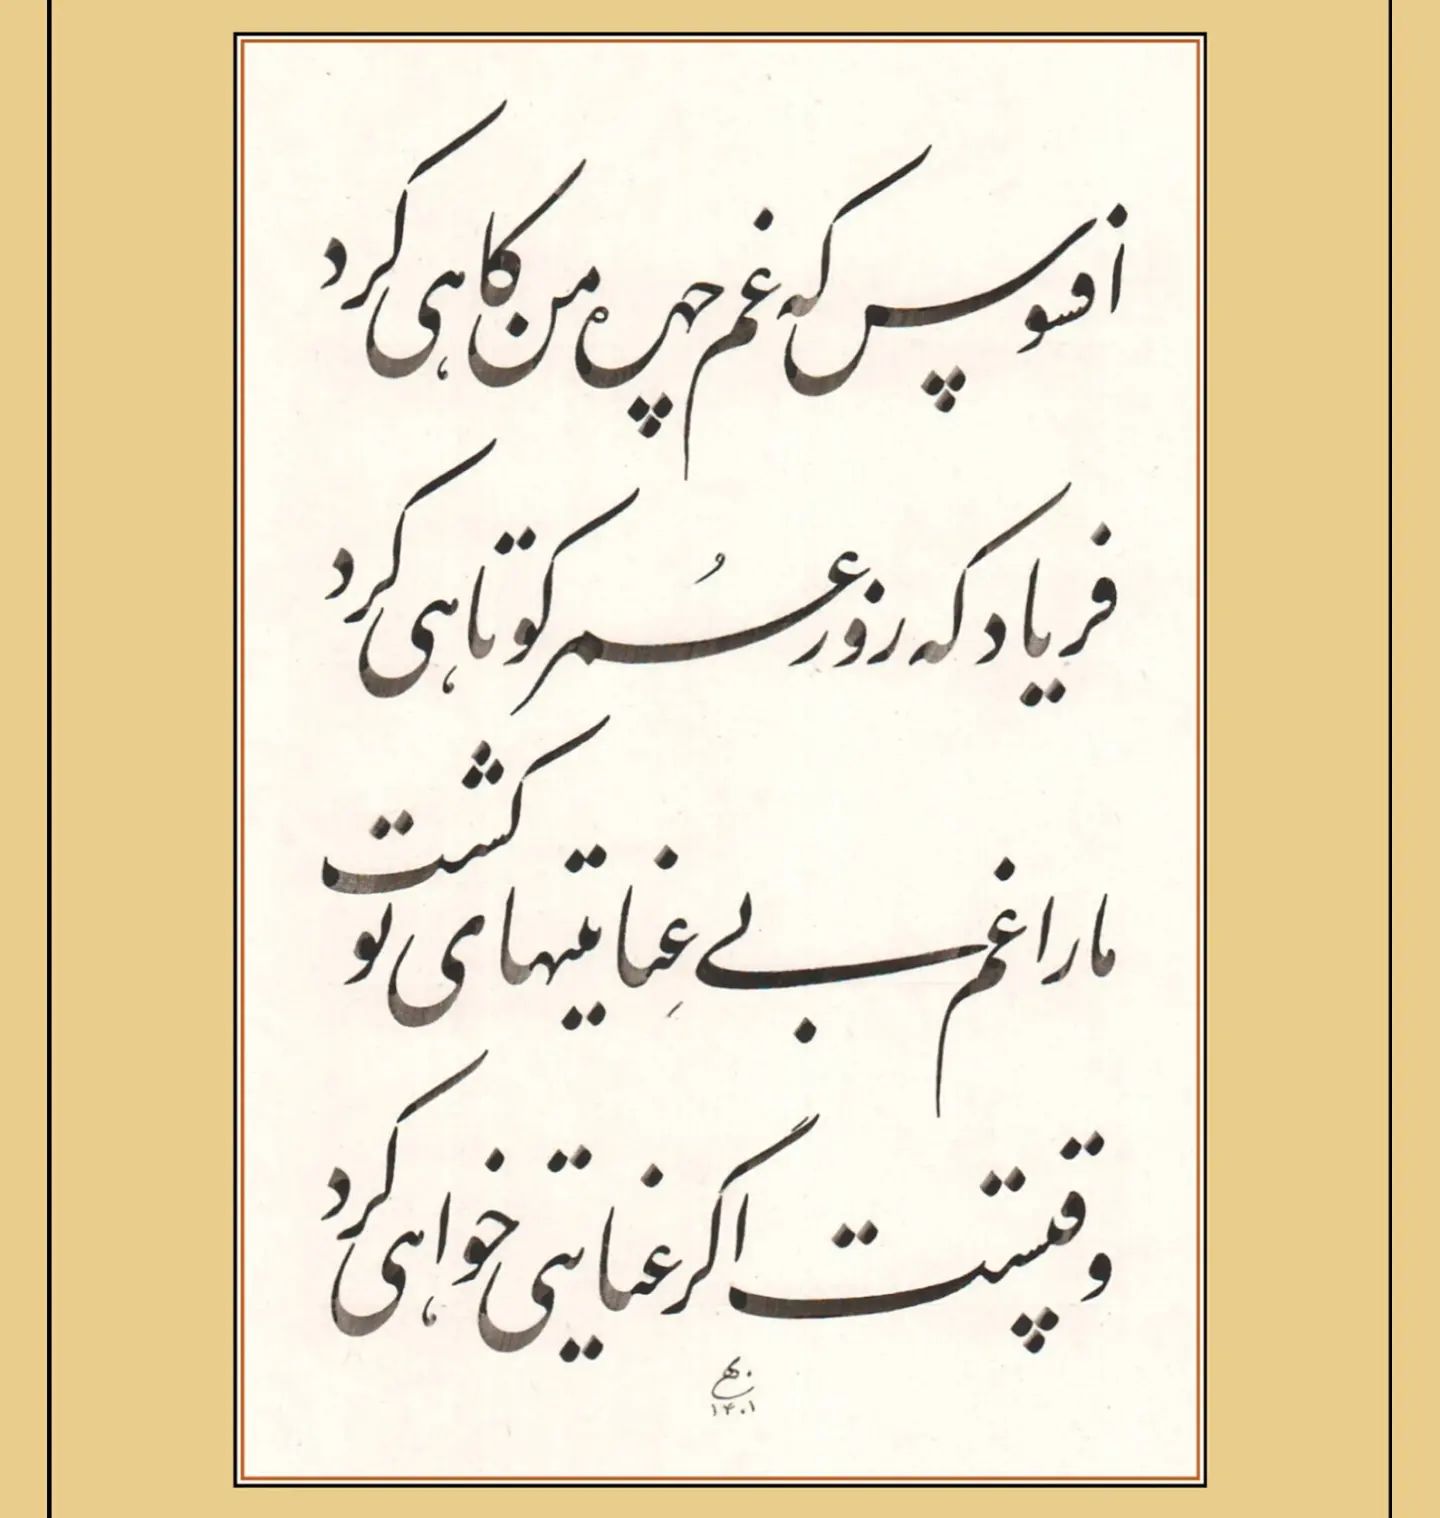 افسوس که غم چهرهٔ من کاهی کرد
فریاد که روز عُمر کوتاهی کرد
ما را غم بی عِنایتیهای تو کشت
وقتیست اگر عنایتی خواهی کرد
۱۴۰۱